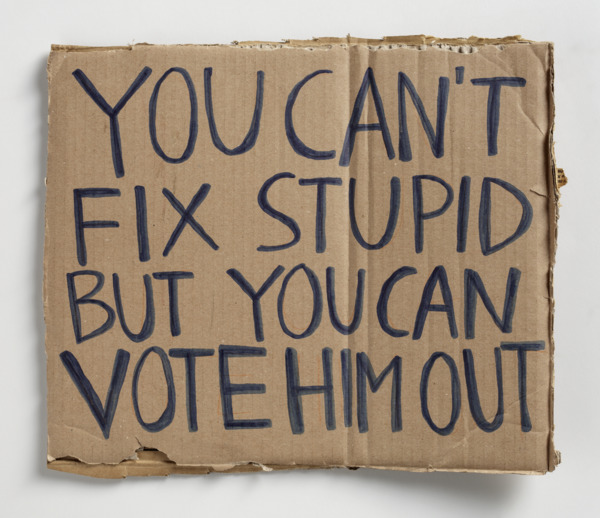 YOU CAN'T
FIX STUPID
BUT YOU CAN
VOTE HIM OUT